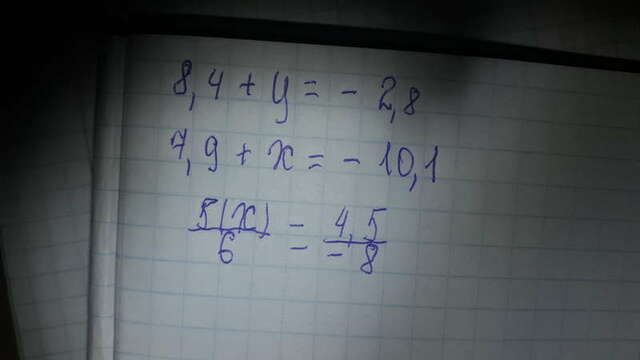 8,4 + y = - 2,8
7,9 + x = - 10,1
5(x)/6 = 4,5/-8